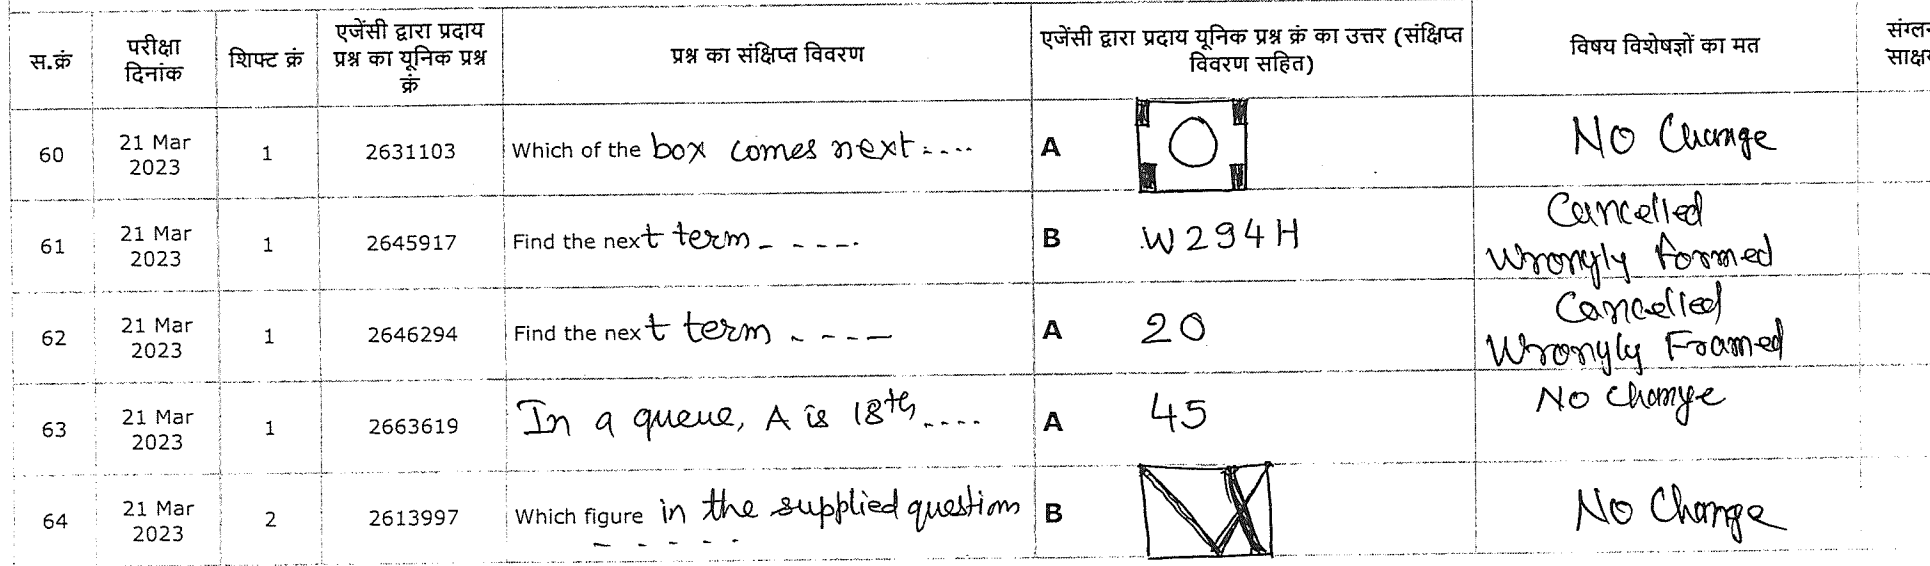 स.क्रं परीक्षा दिनांक शिफ्ट क्रं एजेंसी द्वारा प्रदाय प्रश्न का यूनिक प्रश्न क्रं प्रश्न का संक्षिप्त विवरण एजेंसी द्वारा प्रदाय यूनिक प्रश्न क्रं का उत्तर (संक्षिप्त विवरण सहित) विषय विशेषज्ञों का मत
60 21 Mar 2023 1 2631103 Which of the box comes next.... A No Change
61 21 Mar 2023 1 2645917 Find the next term - - - -. B W294H Cancelled Wrongly Formed
62 21 Mar 2023 1 2646294 Find the next term - - - - A 20 Cancelled Wrongly Framed
63 21 Mar 2023 1 2663619 In a queue, A is 18th.... A 45 No Change
64 21 Mar 2023 2 2613997 Which figure in the supplied question - - - - - B No Change